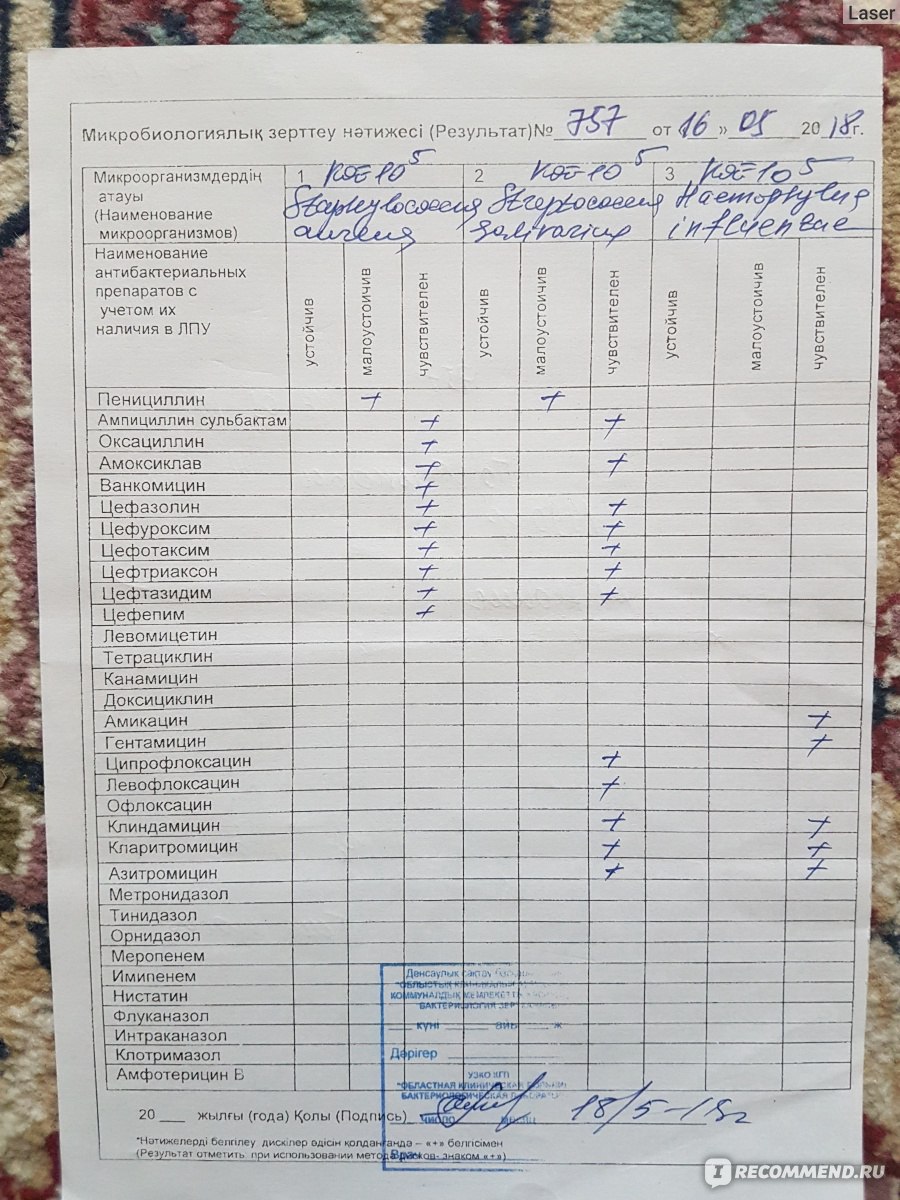 Laser
Микробиологиялық зерттеу нәтижесі (Результат)№ 757 от 16 » 05 2018г.
Микроорганизмдердің атауы (Наименование микроорганизмов)
1 КОЕ-10⁵ Staphylococcus aureus
2 КОЕ-10⁵ Streptococcus salivarius
3 КОЕ-10⁵ Haemophylus influenzae
Наименование
антибактериальных
препаратов с
учетом их
наличия в ЛПУ
устойчив малоустоичив чувствителен устойчив малоустоичив чувствителен устойчив малоустоичив чувствителен
Пенициллин + +
Ампициллин сульбактам + +
Оксациллин +
Амоксиклав + +
Ванкомицин +
Цефазолин + +
Цефуроксим + +
Цефотаксим + +
Цефтриаксон + +
Цефтазидим + +
Цефепим +
Левомицетин
Тетрациклин
Канамицин
Доксициклин
Амикацин +
Гентамицин +
Ципрофлоксацин +
Левофлоксацин +
Офлоксацин
Клиндамицин + +
Кларитромицин + +
Азитромицин + +
Метронидазол
Тинидазол
Орнидазол
Меропенем
Имипенем
Нистатин
Флуканазол
Интраканазол
Клотримазол
Амфотерицин В
Денсаулык сақтау
"ОБЛЫСТЫҚ КЛИНИКАЛЫҚ
КОММУНАЛДЫҚ
БАКТЕРИОЛОГИЯ
күні айы ж
Дәрігер
УЗКО КГП
"ОБЛАСТНАЯ КЛИНИЧЕСКАЯ
БАКТЕРИОЛОГИЧЕСКАЯ
число месяц
Врач
20 жылғы (года) Қолы (Подпись) 18/5-18г
*Нәтижелерді белгілеу дискілер әдісін қолданғанда – «+» белгісімен
(Результат отметить при использовании метода дисков- знаком «+»)
IRECOMMEND.RU